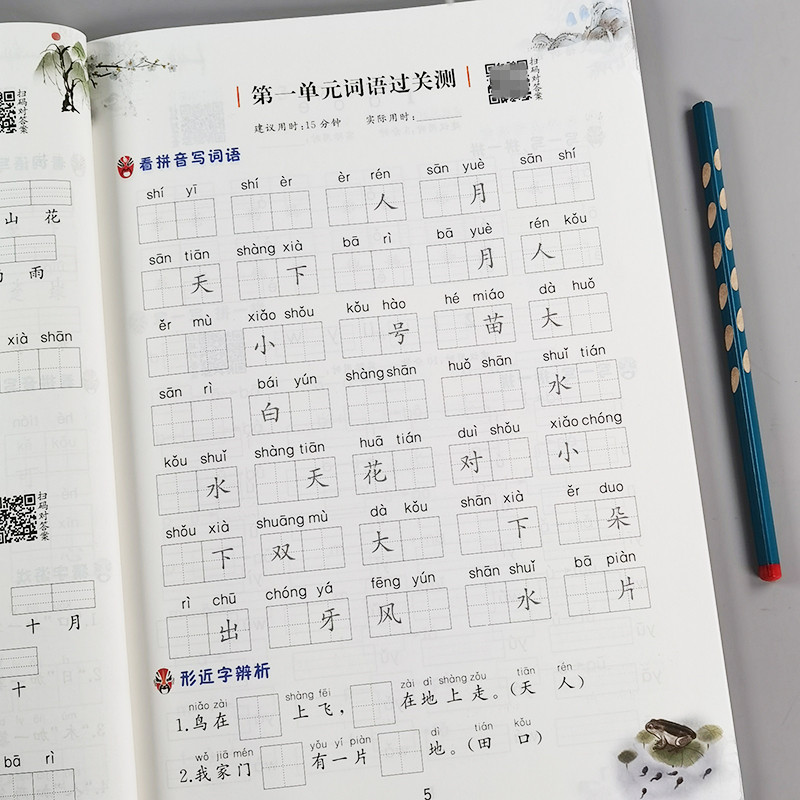 扫码对答案
山 花
雨
xià shān
扫码对答案
十 月
十
bā rì
第一单元词语过关测
扫码对答案
建议用时:15分钟 实际用时:
看拼音写词语
shí yī shí èr èr rén sān yuè sān shí
人 月
sān tiān shàng xià bā rì bā yuè rén kǒu
天 下 月 人
ěr mù xiǎo shǒu kǒu hào hé miáo dà huǒ
小 号 苗 大
sān rì bái yún shàng shān huǒ shān shuǐ tián
白 水
kǒu shuǐ shàng tiān huā tián duì shǒu xiǎo chóng
水 天 花 对 小
shǒu xià shuāng mù dà kǒu shān xià ěr duo
下 双 大 下 朵
rì chū chóng yá fēng yún shān shuǐ bā piàn
出 牙 风 水 片
形近字辨析
niǎo zài shàng fēi zài dì shàng zǒu tiān rén
1.鸟在 上飞， 在地上走。(天 人)
wǒ jiā mén yǒu yí piàn dì tián kǒu
2.我家门 有一片 地。(田 口)
5